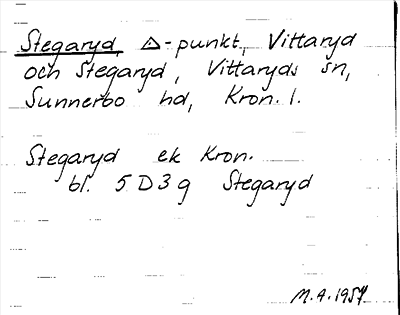 Stegaryd, △-punkt, Vittaryd
och Stegaryd, Vittaryds sn,
Sunnerbo hd, Kron. l.
Stegaryd ek Kron.
bl. 5 D 3 g Stegaryd
M.A. 1957